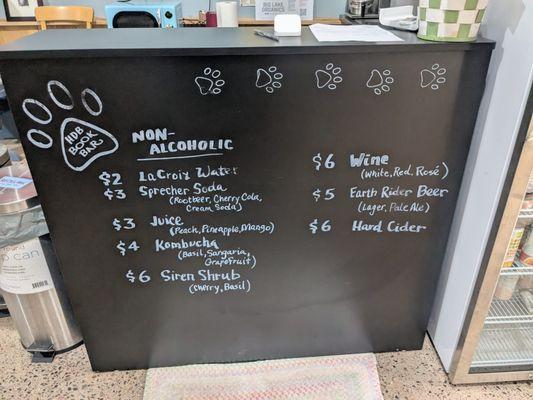 BIG LAKE
ORGANICS
HDB
BOOK
BAR
NON-
ALCOHOLIC
$2 LaCroix Water
$3 Sprecher Soda
(Rootbeer, Cherry Cola,
Cream Soda)
$3 Juice
(Peach, Pineapple, Mango)
$4 Kombucha
(Basil, Sangaria,
Grapefruit)
$6 Siren Shrub
(Cherry, Basil)
$6 Wine
(White, Red, Rosé)
$5 Earth Rider Beer
(Lager, Pale Ale)
$6 Hard Cider
can